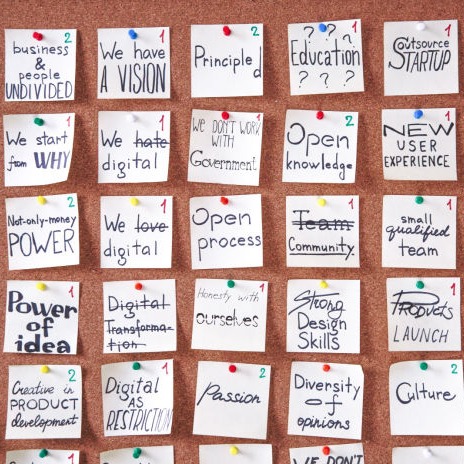 2
business
&
people
UNDIVIDED
1
We have
A VISION
2
Principled
1
? ? ?
Education
? ? ?
Outsource
STARTUP
1
We start
from WHY
1
We hate
digital
1
WE DON'T WORK
WITH
Government
2
Open
knowledge
1
NEW
USER
EXPERIENCE
2
Not-only-money
POWER
1
We love
digital
2
Open
process
1
Team
Community
1
small
qualified
team
1
Power
of
idea
1
Digital
Transforma-
tion
1
Honesty with
ourselves
Strong
Design
Skills
1
Products
LAUNCH
2
Creative in
PRODUCT
development
1
Digital
AS
RESTRICTION
2
Passion
2
Diversity
of
opinions
2
Culture
WE DON'T